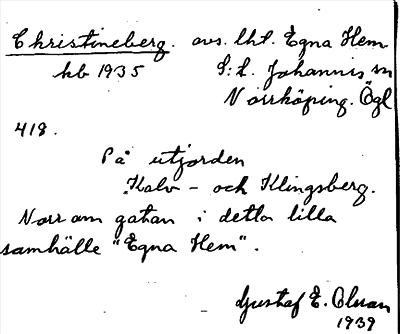 Christineberg. avs. lht. Egna Hem
hb 1935 S:t. Johannis sn
Norrköping. Ögl
418.
På utjorden
Kalv - och Klingsberg.
Norr om gatan i detta lilla
samhälle "Egna Hem".
Gustaf E. Olsson
1939